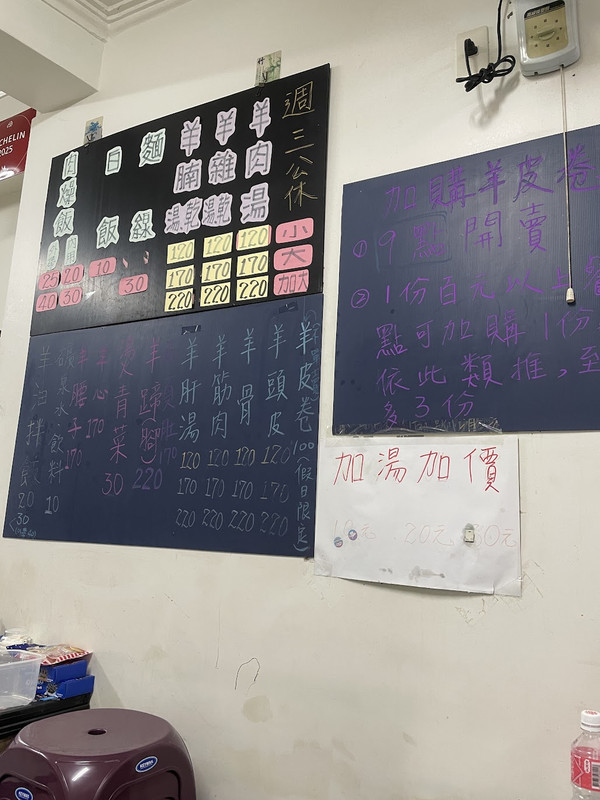 CHELIN
2025
週三公休
小
大
加大
羊肉湯
120
170
220
羊雜湯乾
120
170
220
羊腩湯乾
120
170
220
麵線
30
白飯
10
肉燥飯
小 20
大 30
25
40
羊皮卷 100 (假日限定)
羊頭皮 120 170 220
羊骨 120 170 220
羊筋肉 120 170 220
羊肝湯 120 170 220
羊蹄腳 220
燙青菜 30
羊心 170
羊腰子 170
飲料 10
羊油拌飯 20 30
加購羊皮卷
① 9點開賣
② 1份百元以上
點可加購1份
依此類推,至
多3份
加湯加價
10元 20元 30元